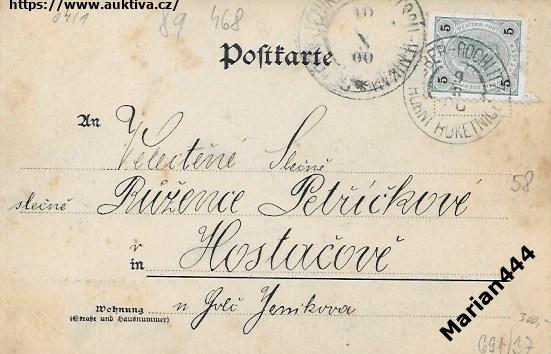 https://www.auktiva.cz/
89 468
Postkarte
5 5
5 5
An
Velectěné Slečně
slečně Růžence Petříčkové
v
in Hostačově
Wohnung
(Straße und Hausnummer)
u Golč Jeníkova
58
Marian444
300,-
691/37